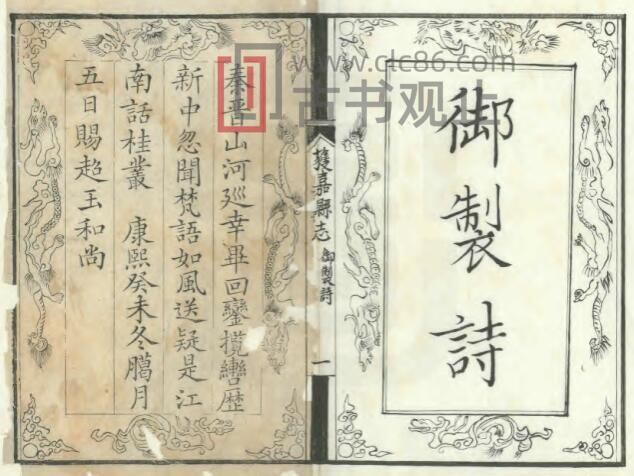 御製詩
獲嘉縣志
御製詩
一
秦晋山河廵幸畢回鑾攬轡歷
新中忽聞梵語如風送疑是江
南話桂叢 康熙癸未冬臈月
五日賜超玉和尚
www.dc86.com
古书观止